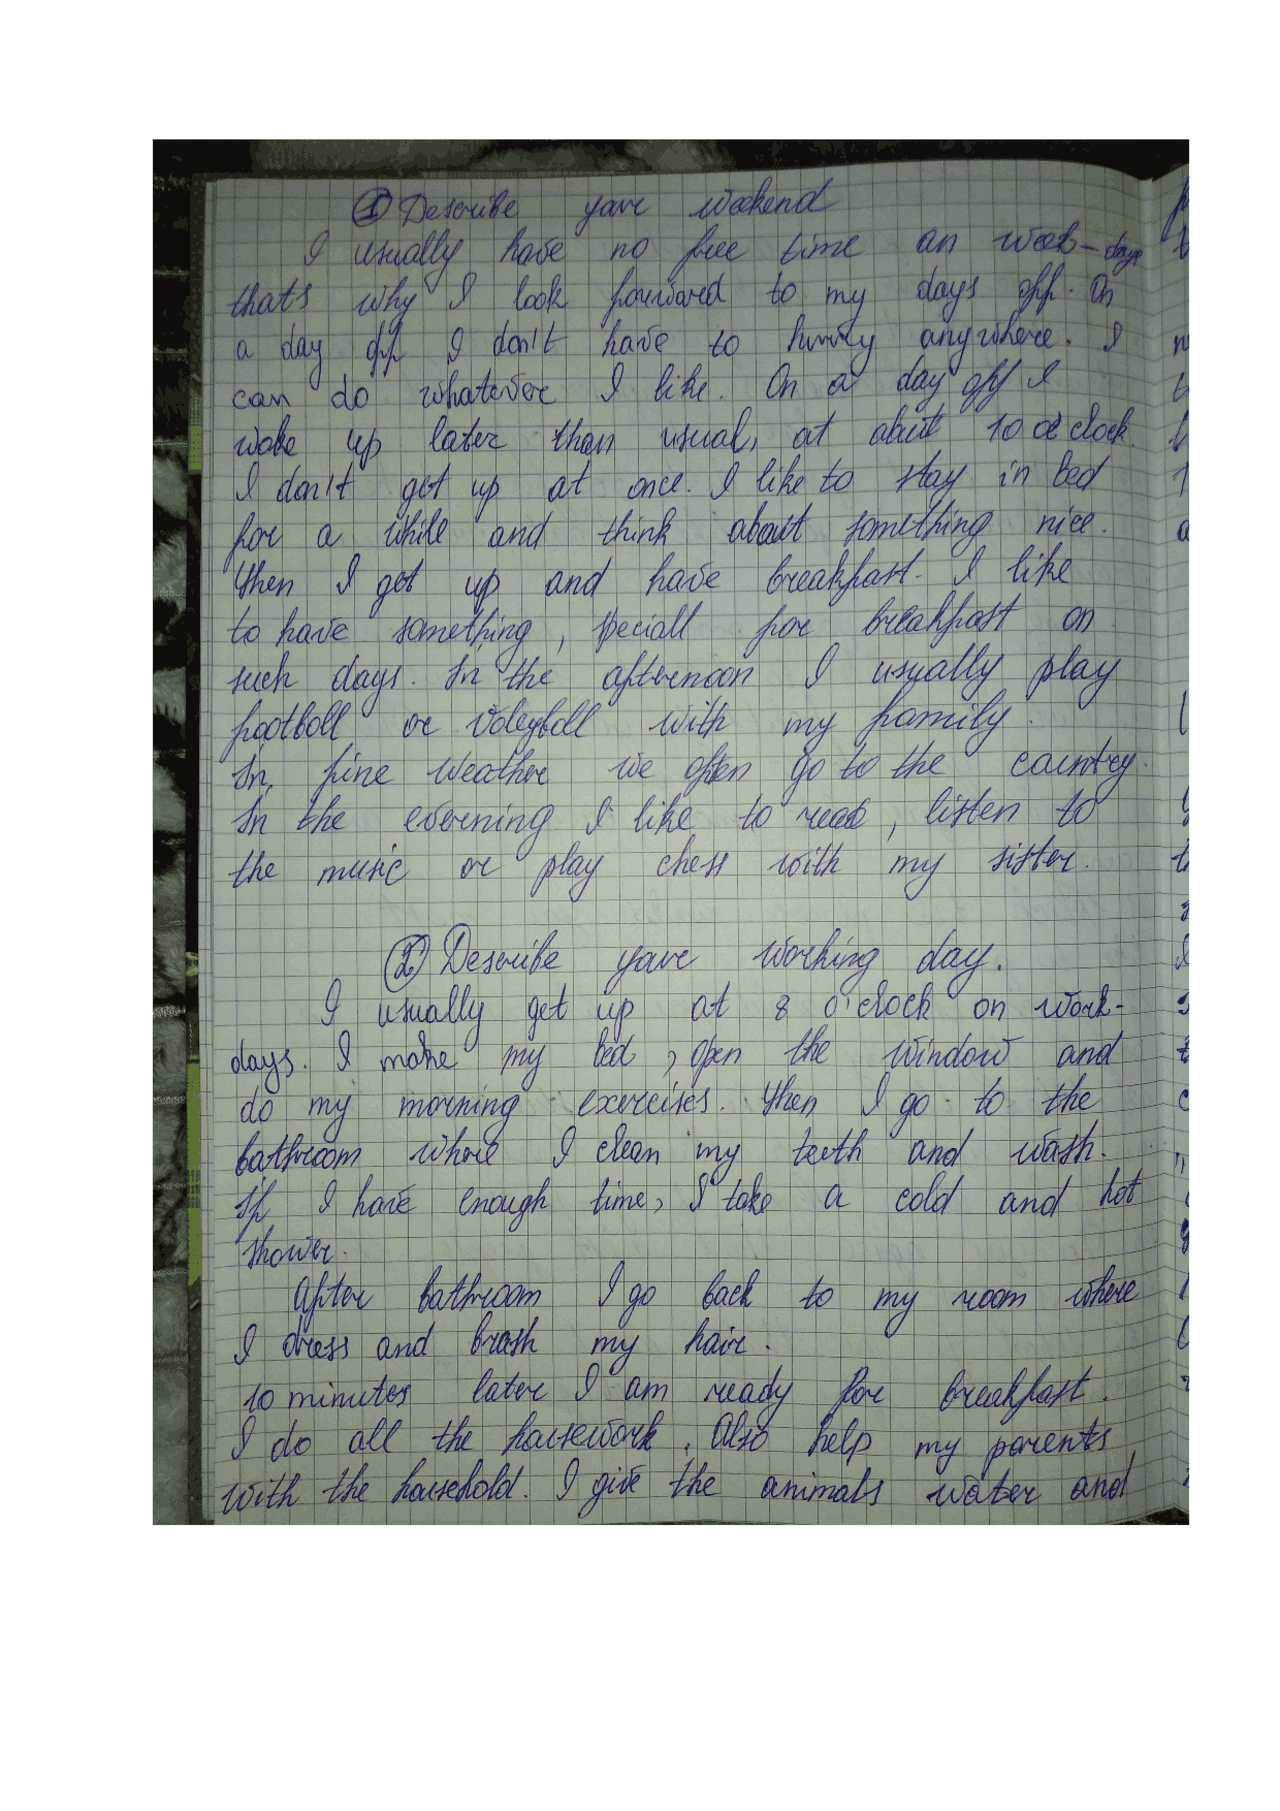 ① Describe your weekend
I usually have no free time on week-days
thats why I look forward to my days off. On
a day off I don't have to hurry anywhere. I
can do whatever I like. On a day off I
wake up later than usual, at about 10 o'clock
I don't get up at once. I like to stay in bed
for a while and think about something nice.
Then I get up and have breakfast. I like
to have something, speciall for breakfast on
such days. In the afternoon I usually play
football or voleyball with my family.
In fine weather we often go to the country.
In the everning I like to read, listen to
the music or play chess with my sister.
② Describe your working day.
I usually get up at 8 o'clock on work-
days. I make my bed, open the window and
do my morning exercises. Then I go to the
bathroom where I clean my teeth and wash.
If I have enough time, I take a cold and hot
shower.
After bathroom I go back to my room where
I dress and brush my hair.
10 minutes later I am ready for breakfast.
I do all the housework. Also help my parents
with the household. I give the animals water and